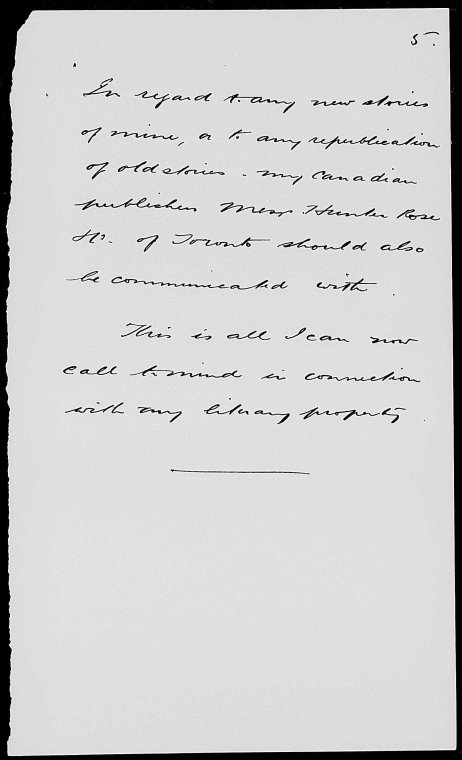 5.
In regard to any new stories
of mine, or to any republication
of old stories - my Canadian
publishers Messrs. Hunter Rose
&Co. of Toronto should also
be communicated with.
This is all I can now
call to mind in connection
with my literary property.